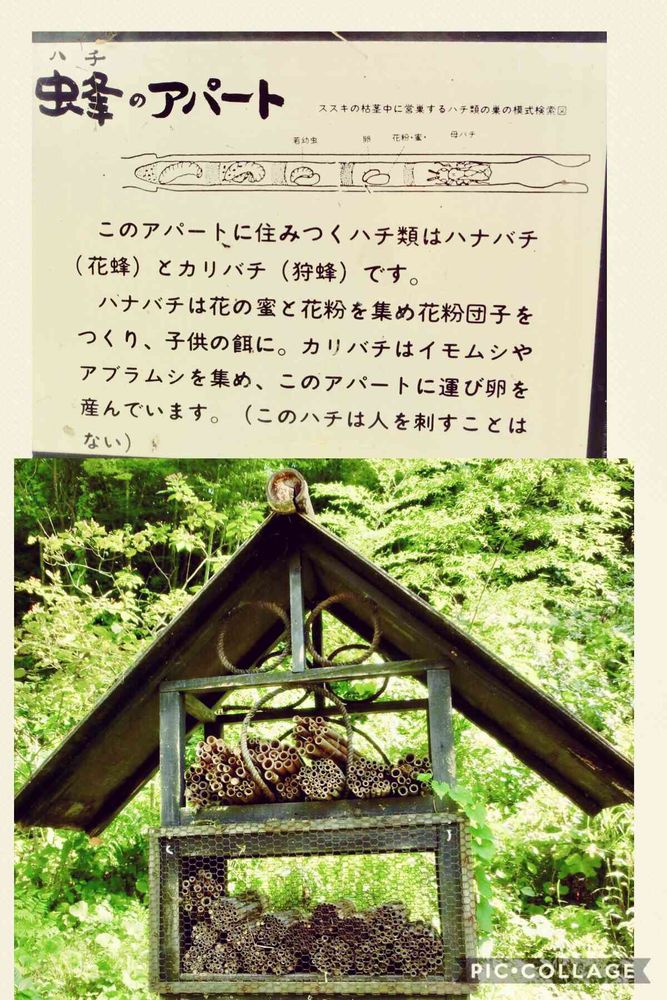 ハチ
虫蜂のアパート
ススキの枯茎中に営巣するハチ類の巣の模式検索図
若幼虫 卵 花粉・蜜・ 母バチ
このアパートに住みつくハチ類はハナバチ
（花蜂）とカリバチ（狩蜂）です。
ハナバチは花の蜜と花粉を集め花粉団子を
つくり、子供の餌に。カリバチはイモムシや
アブラムシを集め、このアパートに運び卵を
産んでいます。（このハチは人を刺すことは
ない）
PIC•COLLAGE